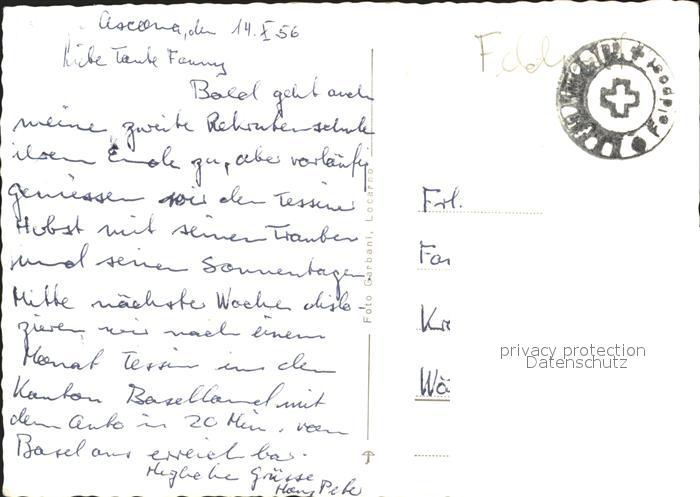 Ascona, den 14. X 56
Liebe Tante Fanny
Bald geht auch
meine zweite Rekrutenschule
ihrem Ende zu, aber vorläufig
geniessen wir den Tessiner
Herbst mit seinen Trauben
und seinen Sonnentagen.
Mitte nächster Woche dislo-
zieren wir nach einem
Monat Tessin in den
Kanton Baselland mit
dem Auto in 20 Min. von
Basel aus erreichbar.
Herzliche Grüsse
Hans Peter
Foto Garbani, Locarno
Feldpost
Feldpost
Frl.
Fa
Kr
Wä
privacy protection
Datenschutz